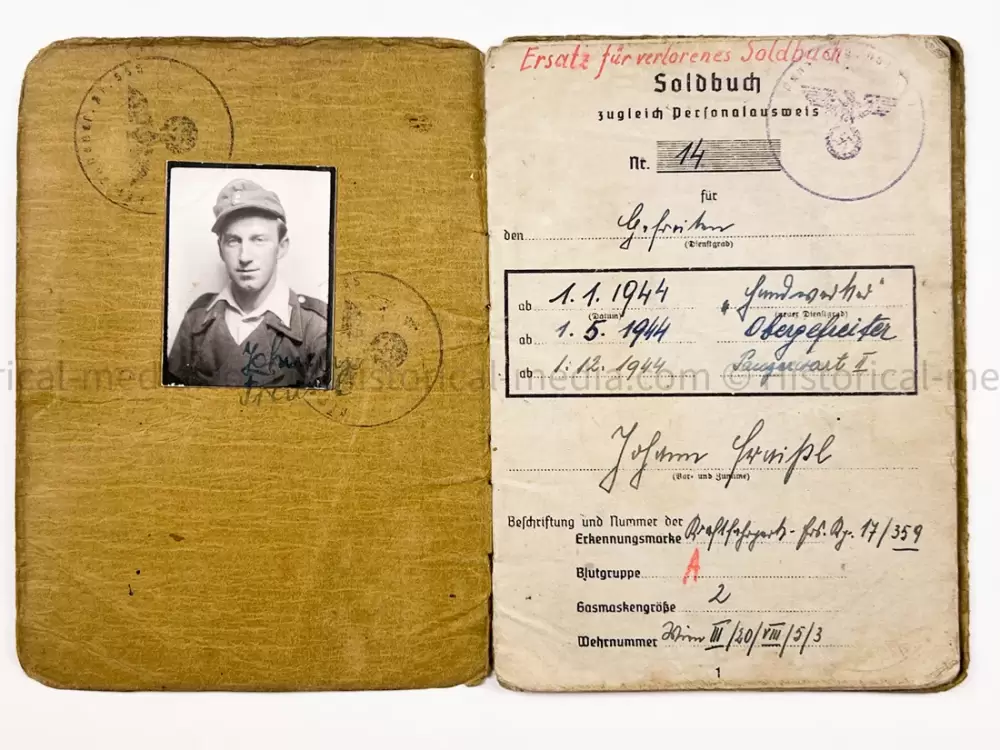 Johann
Ersatz für verlorenes Soldbuch
Soldbuch
zugleich Personalausweis
Nr. 14
für
den Gefreiten
(Dienstgrad)
ab 1.1.1944 "Handwerker"
(Datum) (neuer Dienstgrad)
ab 1.5.1944 Obergefreiter
ab 1.12.1944 Panzerwart II
historical-media.com © historical-me
Johann
(Vor- und Zuname)
Beschriftung und Nummer der
Erkennungsmarke Kraftfahrpark-Ers. Kp. 17/359
Blutgruppe A
Gasmaskengröße 2
Wehrnummer Wien III/20/VIII/5/3
1